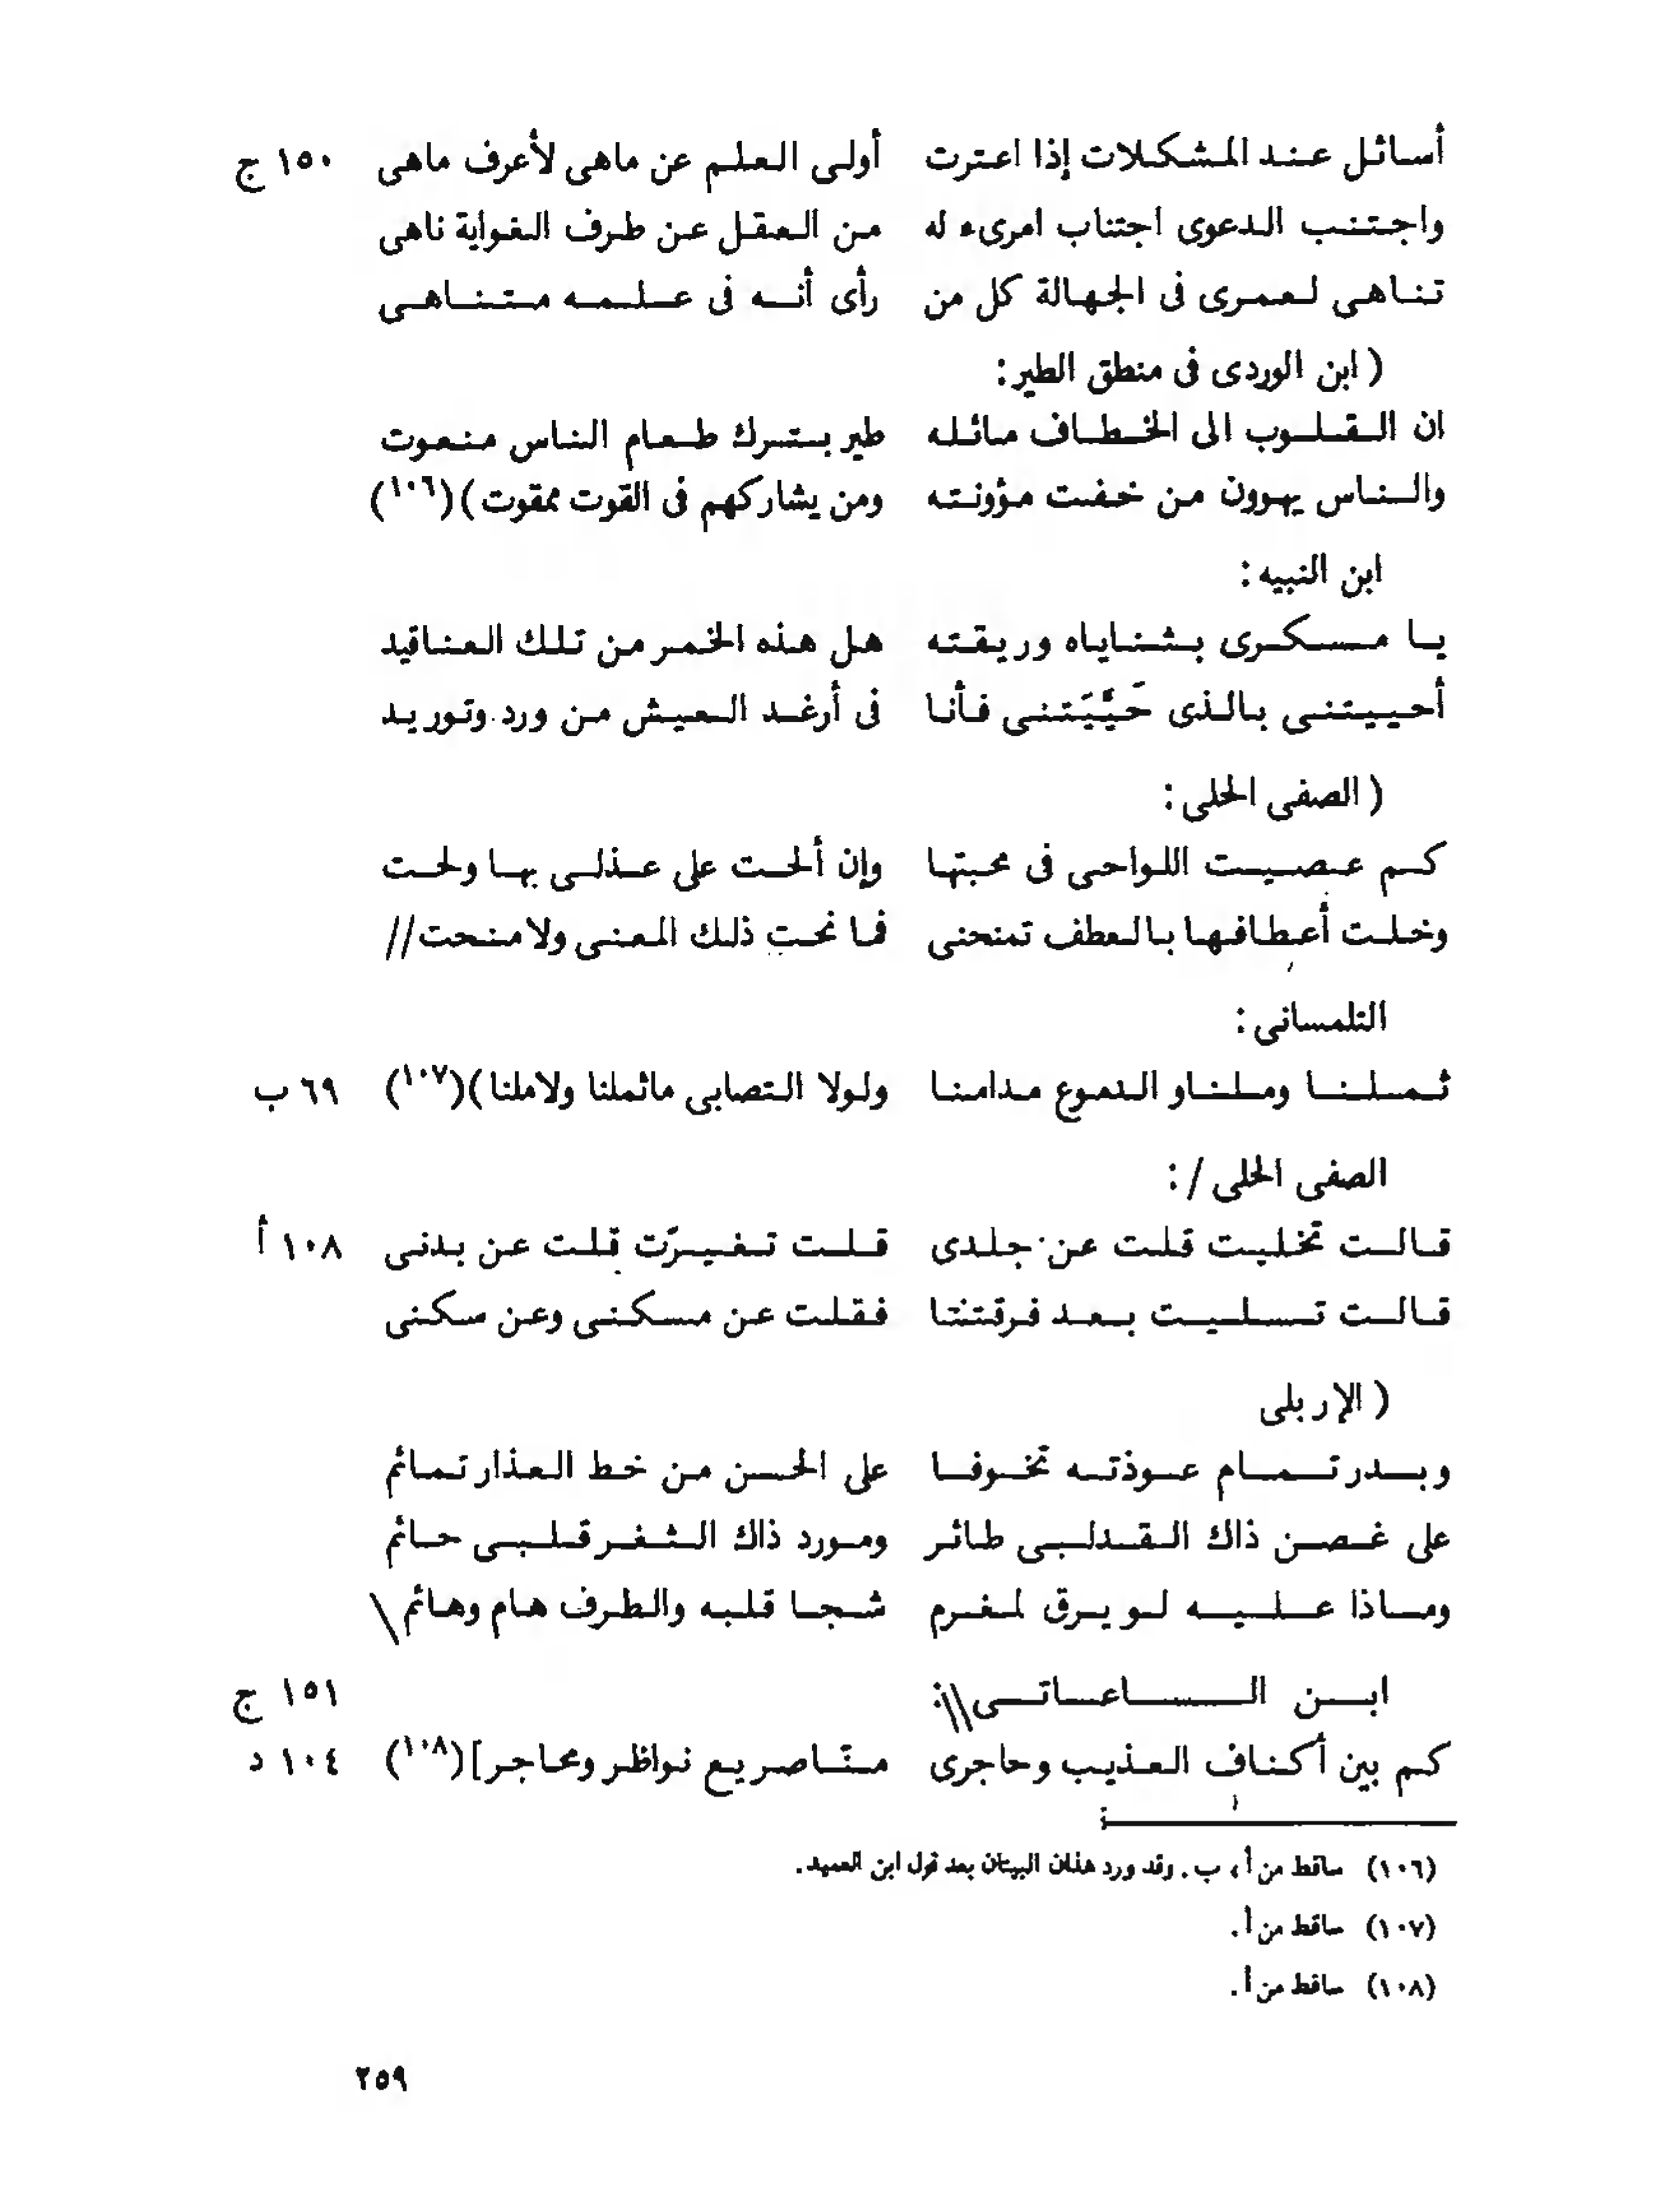 أسائل عند المشكلات إذا اعترت أولى العلم عن ماهى لأعرف ماهى ١٥٠ ج
واجتنب الدعوى اجتناب امرىء له من العقل عن طرف الغواية ناهى
تناهى لعمرى فى الجهالة كل من رأى أنه فى علمه متناهى
( ابن الوردى فى منطق الطير :
ان القلوب الى الخطاف مائله طير بترك طعام الناس منعوت
والناس يهوون من خفت مؤونته ومن يشاركهم فى القوت ممقوت ) (١٠٦)
ابن النبيه :
يا مسكرى بثناياه وريقته هل هذه الخمر من تلك العناقيد
أحييتنى بالذى حَيَّيَتنى فأنا فى أرغد العيش من ورد وتوريد
( الصفى الحلى :
كم عصيت اللواحى فى محبتها وإن ألحت على عذلى بها ولحت
وخلت أعطافها بالعطف تمنحنى فما نحت ذلك المعنى ولا منحت //
التلمسانى :
ثملنا وملنا و الدموع مدامنا ولولا التصابى ماثملنا ولاملنا ) (١٠٧) ٦٩ ب
الصفى الحلى / :
قالت تخليت قلت عن جلدى قلت تغيرّت قلت عن بدنى ١٠٨ أ
قالت تسليت بعد فرقتنتا فقلت عن مسكنى وعن سكنى
( الإربلى
وبدر تمام عوذته تخوفا على الحسن من خط العذار تمائم
على غصن ذاك القدلبى طائر ومورد ذاك الثغر قلبى حائم
وماذا عليه لو يرق لمغرم شجا قلبه والطرف هام وهائم \
ابن الساعاتى \\ : ١٥١ ج
كم بين أكناف العذيب وحاجرى منّا صريع نواظر ومحاجر ] (١٠٨) ١٠٤ د
(١٠٦) ساقط من أ ، ب . وقد ورد هذان البيتان بعد قول ابن العميد .
(١٠٧) ساقط من أ .
(١٠٨) ساقط من أ .
٢٥٩